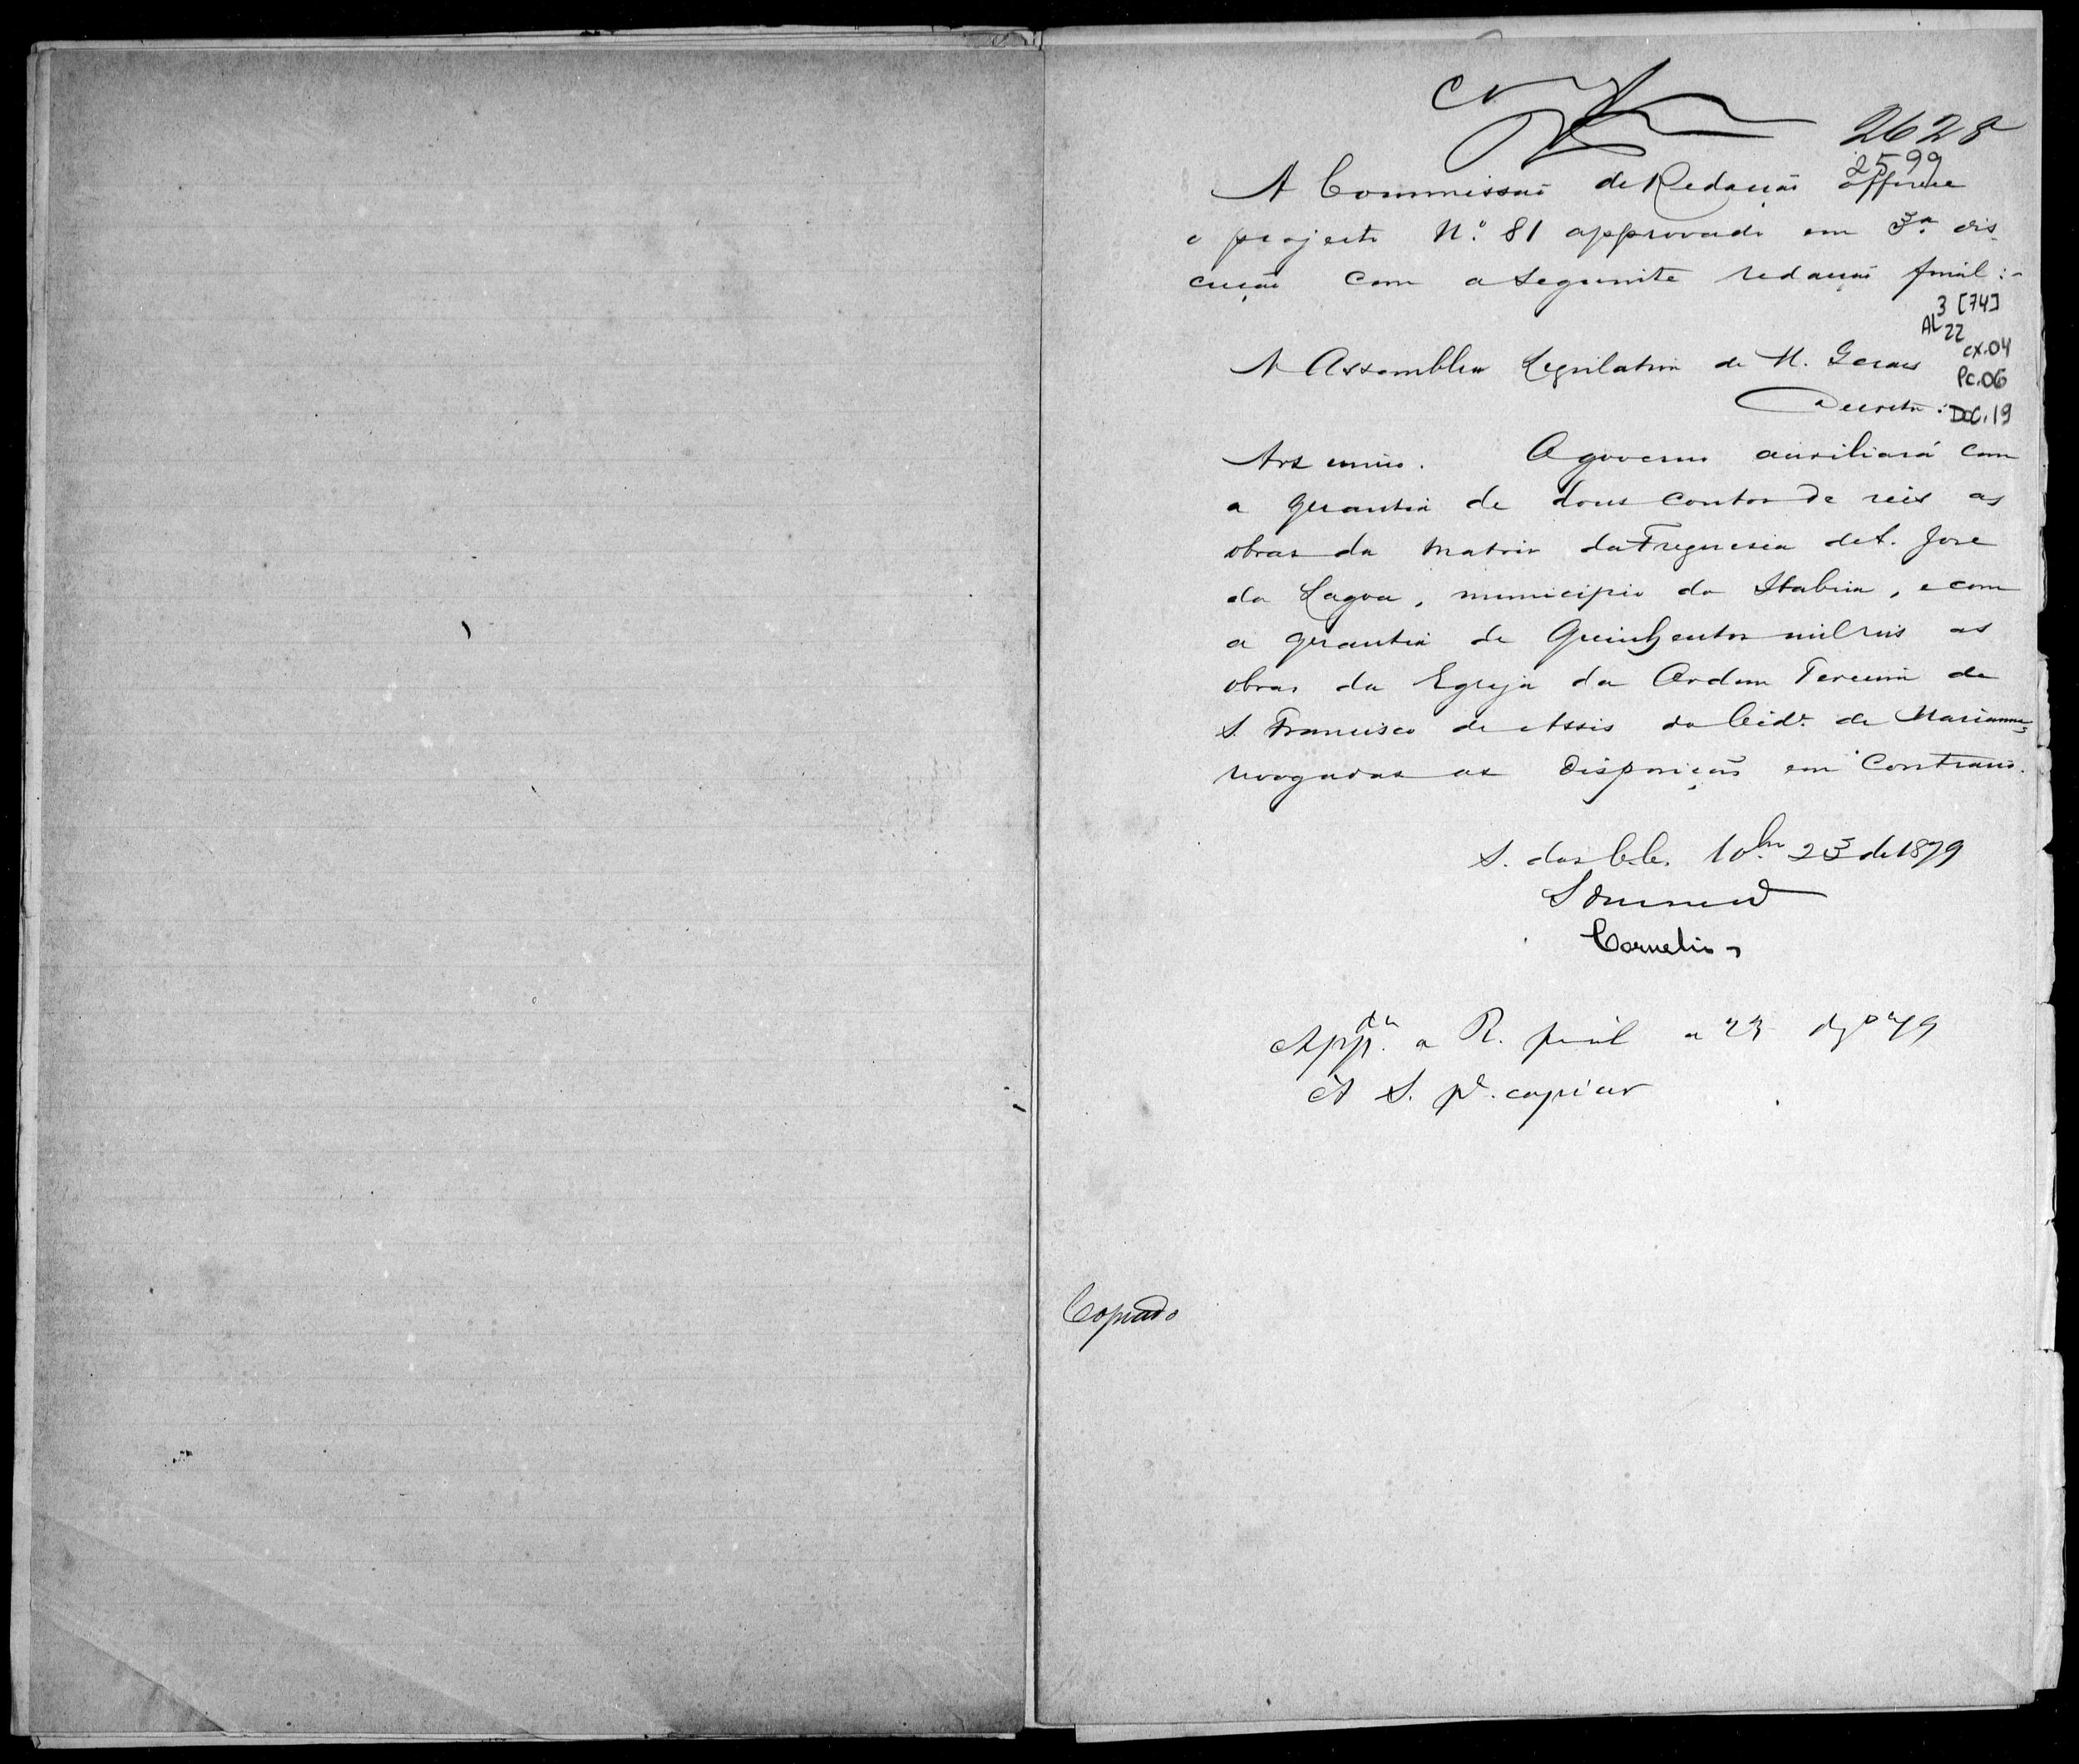 2628
2599
A Commissaõ de Redacçaõ offerece
o projecto N.º 81 approvado em 3ª dis
cuçaõ com a seguinte redacçaõ final:-
3 [74]
AL 22
cx.04
Pc.06
A Assemblea Legislativa de M. Geraes
Decreta:
Doc.19
Art unico. O governo auxiliará com
a quantia de dous contos de reis as
obras da Matriz da Freguesia de S. Jose
da Lagoa, municipio da Itabira, e com
a quantia de Quinhentos mil reis as
obras da Egreja da Ordem Terceira de
S. Francisco de Assis da Cidᵉ de Marianna
revogadas as disposiçoẽs em Contrario.
S. das CC. 10bro 23 de 1879
Drumond
Cornelio
Appda. a R. final a 23 dzº 79
A S. pª. copiar
Copiado